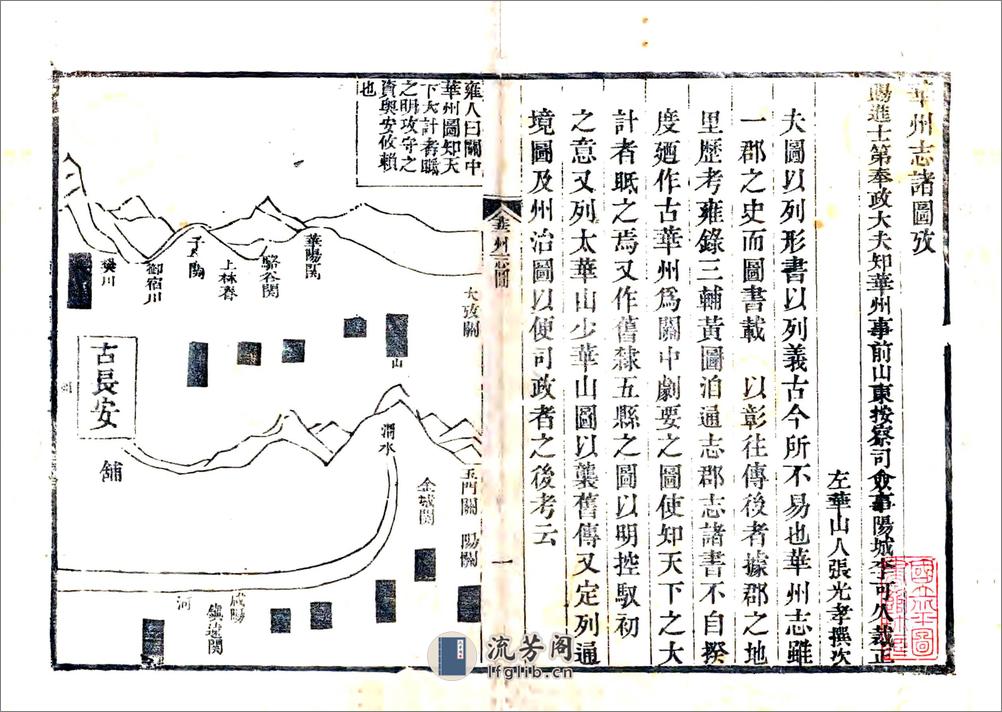 華州志諸圖攷
賜進士第奉政大夫知華州事前山東按察司僉事陽城李可久裁正
左華山人張光孝撰次
夫圖以列形書以列義古今所不易也華州志雖
一郡之史而圖書載 以彰往傳後者據郡之地
里歷考雍錄三輔黃圖洎通志郡志諸書不自揆
度廼作古華州為關中劇要之圖使知天下之大
計者眡之焉又作舊隸五縣之圖以明控馭初
之意又列太華山少華山圖以襲舊傳又定列通
境圖及州治圖以便司政者之後考云
華州志圖
一
雍人曰關中
華州圖知天
下大計者眡
之明攻守之
資與安攸賴
也
大散關
華陽關
駱谷関
上林春
子午關
御宿川
樊川
山
古長安
舖
州
渭水
玉門關
陽關
金城関
咸陽
鎮遠関
河
流芳阁
lfglib.cn